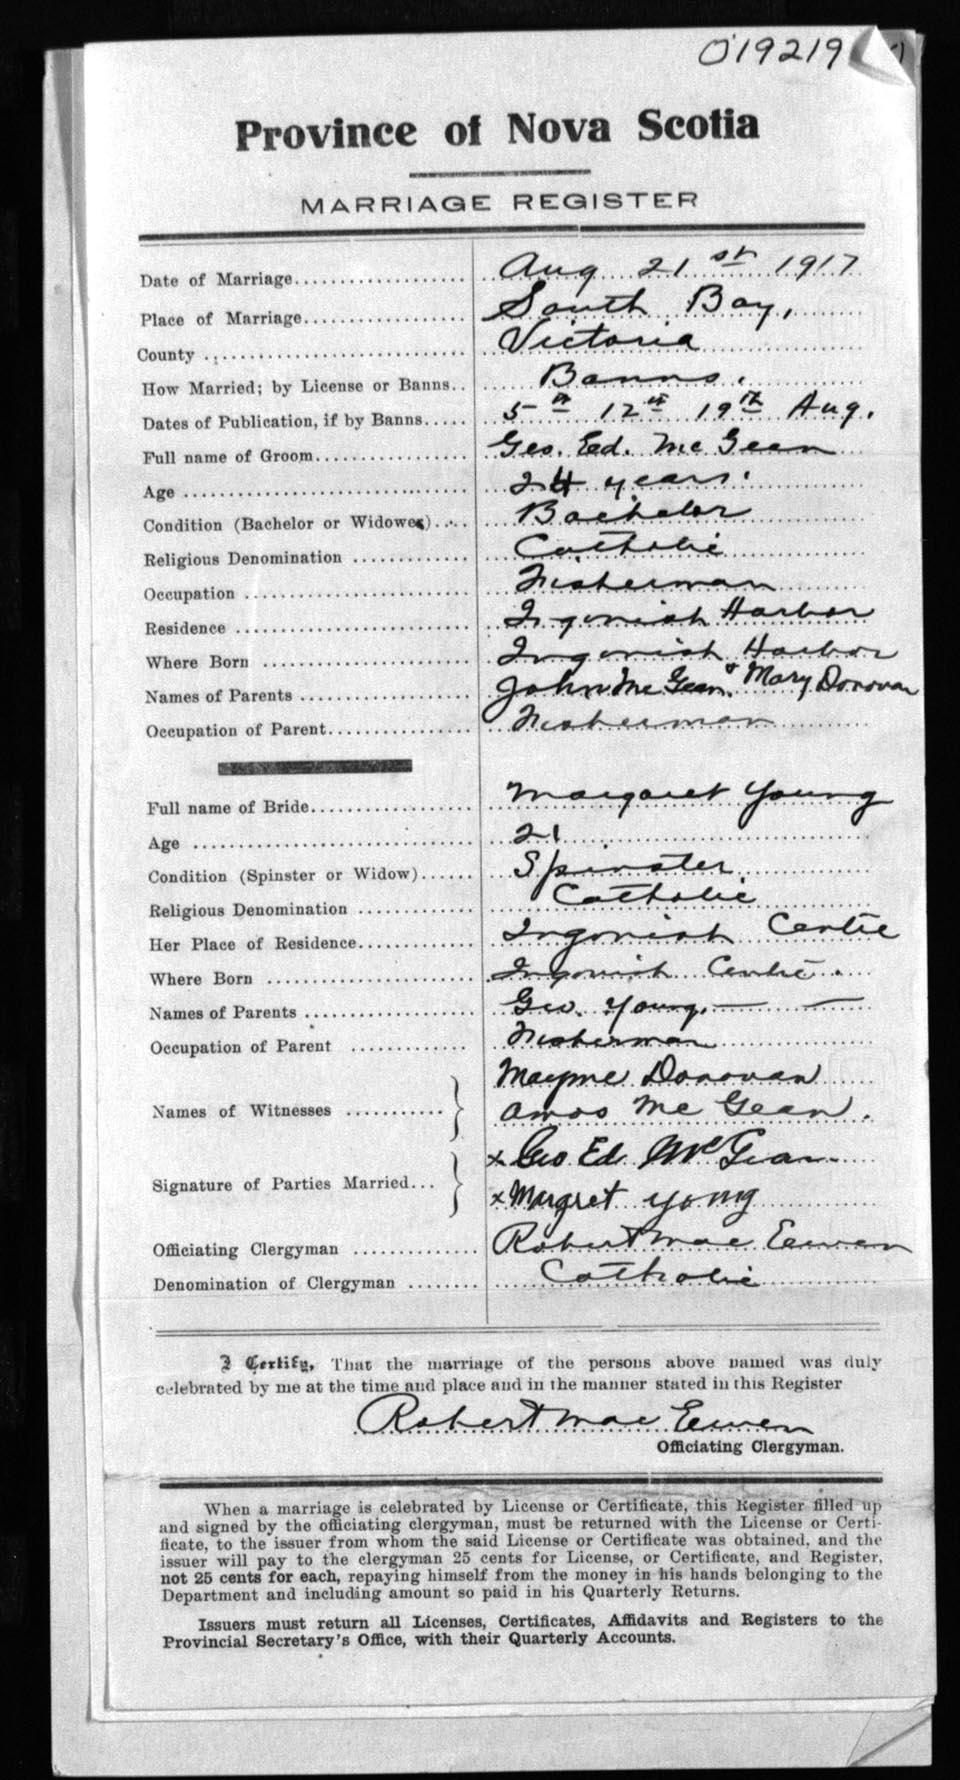 019219
Province of Nova Scotia
MARRIAGE REGISTER
Date of Marriage.................... Aug 21st 1917
Place of Marriage................... South Bay,
County ............................. Victoria
How Married; by License or Banns.. Banns.
Dates of Publication, if by Banns..... 5th 12th 19th Aug.
Full name of Groom.................. Geo. Ed. Mc Gean
Age ................................ 24 years.
Condition (Bachelor or Widower)..... Bachelor
Religious Denomination ............. Catholic
Occupation ......................... Fisherman
Residence .......................... Ingonish Harbor
Where Born ......................... Ingonish Harbor
Names of Parents ................... John Mc Gean & Mary Donovan
Occupation of Parent................ Fisherman
Full name of Bride.................. Margaret Young
Age ................................ 21
Condition (Spinster or Widow)...... Spinster
Religious Denomination ............. Catholic
Her Place of Residence............. Ingonish Centre
Where Born ......................... Ingonish Centre.
Names of Parents ................... Geo. Young.
Occupation of Parent .............. Fisherman
Names of Witnesses ........... } Mayme Donovan
Amos Mc Gean.
Signature of Parties Married... } x Geo Ed McGean
x Margret young
Officiating Clergyman .............. Robert Mac Eewen
Denomination of Clergyman ........ Catholic
I Certify, That the marriage of the persons above named was duly
celebrated by me at the time and place and in the manner stated in this Register
Robert Mac Eewen
Officiating Clergyman.
When a marriage is celebrated by License or Certificate, this Register filled up
and signed by the officiating clergyman, must be returned with the License or Certi-
ficate, to the issuer from whom the said License or Certificate was obtained, and the
issuer will pay to the clergyman 25 cents for License, or Certificate, and Register,
not 25 cents for each, repaying himself from the money in his hands belonging to the
Department and including amount so paid in his Quarterly Returns.
Issuers must return all Licenses, Certificates, Affidavits and Registers to the
Provincial Secretary's Office, with their Quarterly Accounts.